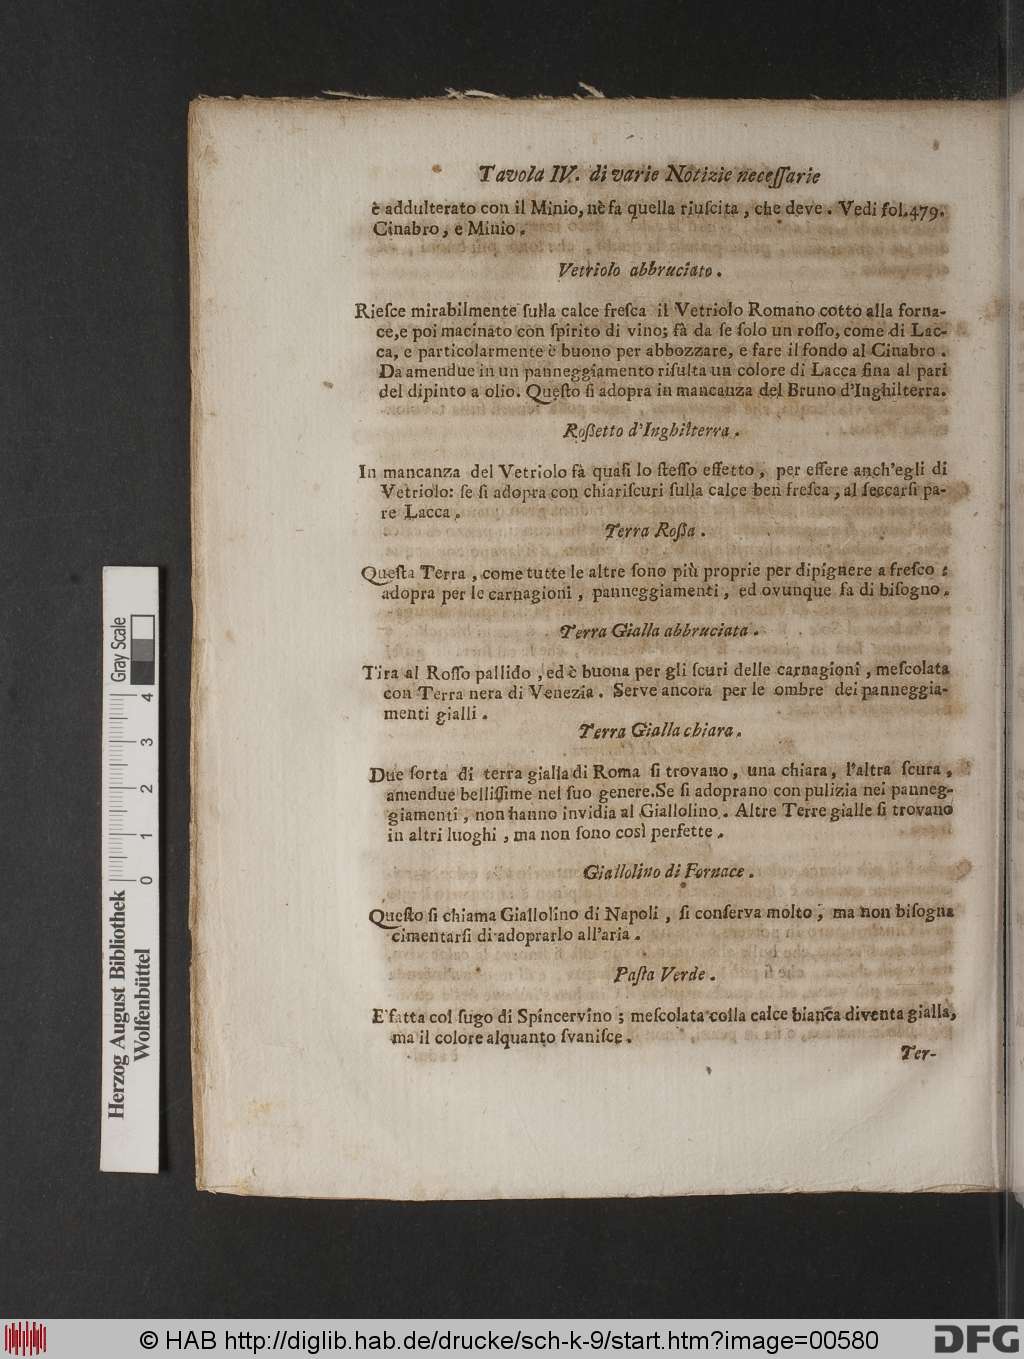 Tavola IV. di varie Notizie neceſſarie
è addulterato con il Minio, nè fa quella riuſcita, che deve. Vedi fol. 479.
Cinabro, e Minio.
Vetriolo abbruciato.
Rieſce mirabilmente ſulla calce freſca il Vetriolo Romano cotto alla forna-
ce, e poi macinato con ſpirito di vino; fà da ſe ſolo un roſſo, come di Lac-
ca, e particolarmente è buono per abbozzare, e fare il fondo al Cinabro.
Da amendue in un panneggiamento riſulta un colore di Lacca fina al pari
del dipinto a olio. Queſto ſi adopra in mancanza del Bruno d'Inghilterra.
Roßetto d'Inghilterra.
In mancanza del Vetriolo fà quaſi lo ſteſſo effetto, per eſſere anch'egli di
Vetriolo: ſe ſi adopra con chiariſcuri ſulla calce ben freſca, al ſeccarſi pa-
re Lacca.
Terra Roßa.
Queſta Terra, come tutte le altre ſono più proprie per dipignere a freſco:
adopra per le carnagioni, panneggiamenti, ed ovunque fa di biſogno.
Terra Gialla abbruciata.
Tira al Roſſo pallido, ed è buona per gli ſcuri delle carnagioni, meſcolata
con Terra nera di Venezia. Serve ancora per le ombre dei panneggia-
menti gialli.
Terra Gialla chiara.
Due ſorta di terra gialla di Roma ſi trovano, una chiara, l'altra ſcura,
amendue belliſſime nel ſuo genere. Se ſi adoprano con pulizia nei panneg-
giamenti, non hanno invidia al Giallolino. Altre Terre gialle ſi trovano
in altri luoghi, ma non ſono così perfette.
Giallolino di Fornace.
Queſto ſi chiama Giallolino di Napoli, ſi conſerva molto, ma non biſogna
cimentarſi di adoprarlo all'aria.
Paſta Verde.
E' fatta col ſugo di Spincervino; meſcolata colla calce bianca diventa gialla,
ma il colore alquanto ſvaniſce.
Ter-
Herzog August Bibliothek
Wolfenbüttel
Gray Scale
0 1 2 3 4
© HAB http://diglib.hab.de/drucke/sch-k-9/start.htm?image=00580
DFG